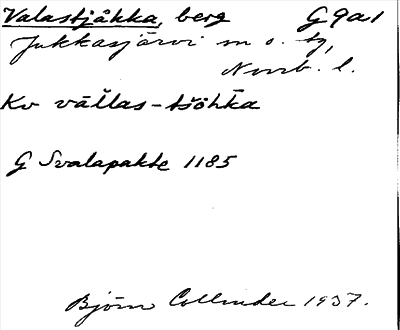 Valastjåkka, berg G9a1
Jukkasjärvi sn o. tg,
Norrb. l.
Kv vāl̆las-tšōhka
G Svalapakte 1185
Björn Collinder 1937.